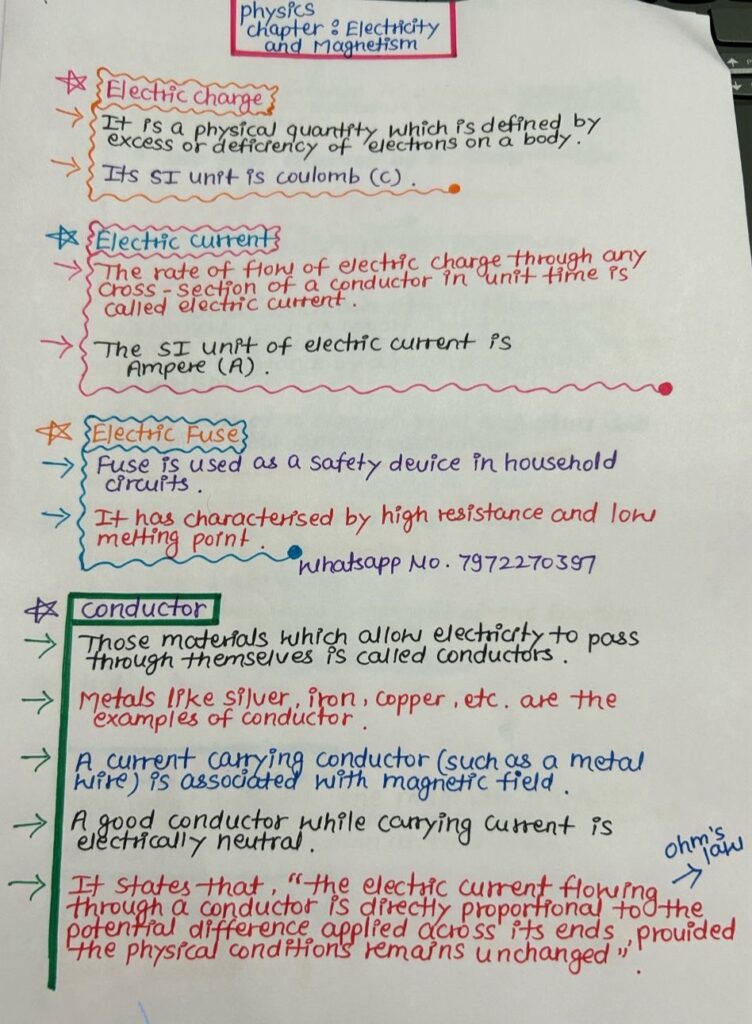 physics
chapter : Electricity
and Magnetism
Electric charge
It is a physical quantity which is defined by
excess or deficiency of electrons on a body.
Its SI unit is coulomb (C).
Electric current
The rate of flow of electric charge through any
cross-section of a conductor in unit time is
called electric current.
The SI unit of electric current is
Ampere (A).
Electric Fuse
Fuse is used as a safety device in household
circuits.
It has characterised by high resistance and low
melting point.
Whatsapp No. 7972270397
conductor
Those materials which allow electricity to pass
through themselves is called conductors.
Metals like silver, iron, copper, etc. are the
examples of conductor.
A current carrying conductor (such as a metal
wire) is associated with magnetic field.
A good conductor while carrying current is
electrically neutral.
ohm's
law
It states that, "the electric current flowing
through a conductor is directly proportional to the
potential difference applied across its ends, provided
the physical conditions remains unchanged".